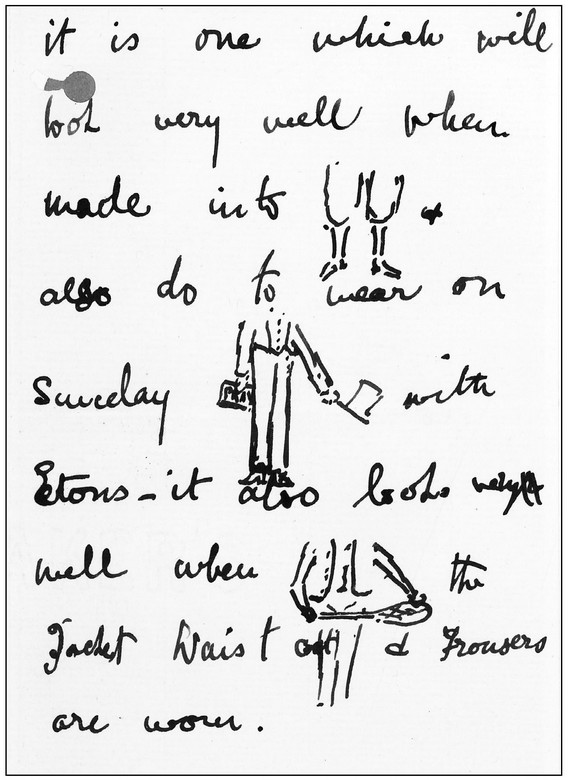 it is one which will
look very well when
made into &
also do to wear on
Sunday with
Etons - it also looks very
well when the
Jacket Waist & Trousers
are worn.